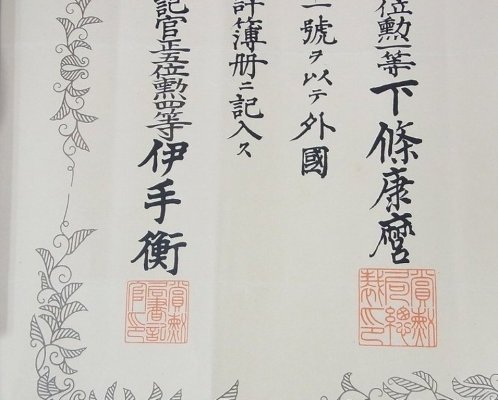 位勲一等下條康麿
一號ヲ以テ外國
許簿册ニ記入ス
記官正五位勲四等伊手衡
賞勲局總裁之印
賞勲局書記官之印